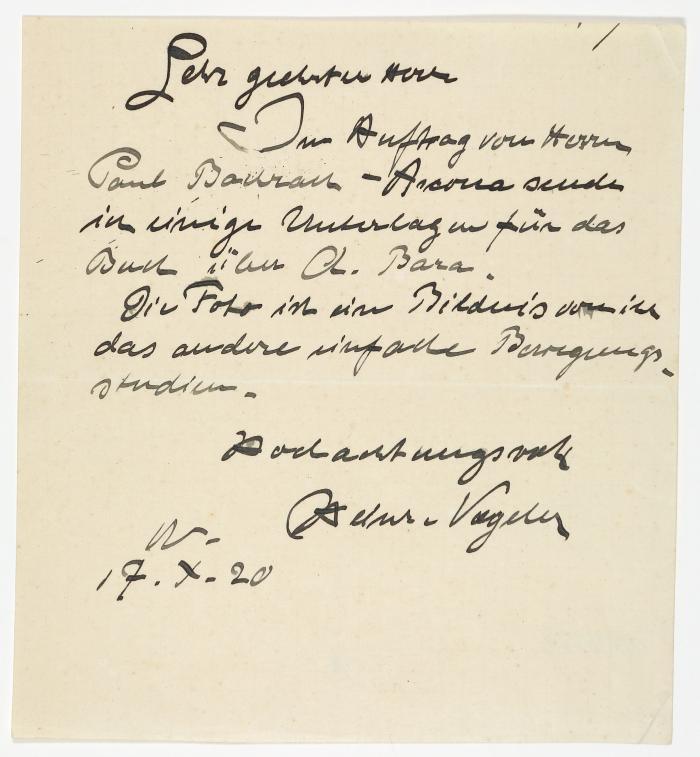 Sehr geehrter Herr
Im Auftrag von Herrn
Paul Bachrach - Ascona sende
ich einige Unterlagen für das
Buch über Ch. Bara.
Die Foto ist ein Bildnis von ihr
das andere einfache Bewegungs-
studien.
Hochachtungsvoll
Heinr. Vogeler
W.
17. X. 20